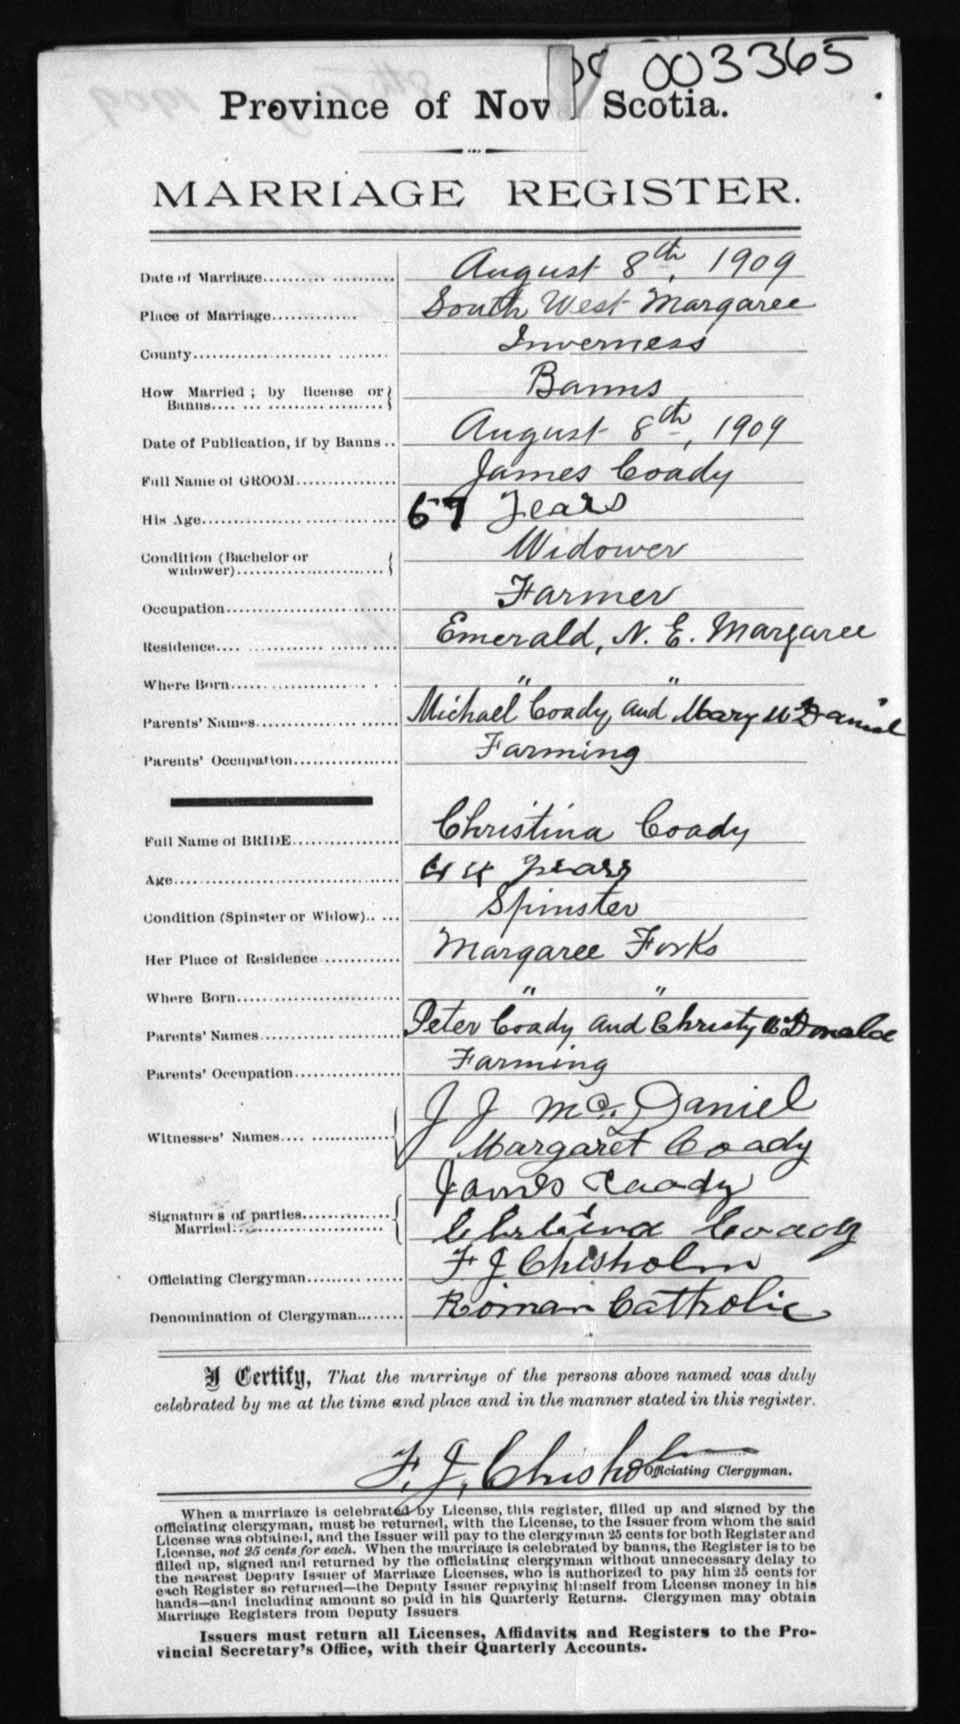 003365
Province of Nov Scotia.
MARRIAGE REGISTER.
Date of Marriage August 8th, 1909
Place of Marriage South West Margaree
County Inverness
How Married; by license or Banns Banns
Date of Publication, if by Banns August 8th, 1909
Full Name of GROOM James Coady
His Age 67 Years
Condition (Bachelor or widower) Widower
Occupation Farmer
Residence Emerald, N. E. Margaree
Where Born " "
Parents' Names Michael Coady and Mary McDaniel
Parents' Occupation Farming
Full Name of BRIDE Christina Coady
Age 44 years
Condition (Spinster or Widow) Spinster
Her Place of Residence Margaree Forks
Where Born " "
Parents' Names Peter Coady and Christy McDonald
Parents' Occupation Farming
Witnesses' Names J J McDaniel
Margaret Coady
Signatures of parties Married James Coady
Christina Coady
Officiating Clergyman F J Chisholm
Denomination of Clergyman Roman Catholic
I Certify, That the marriage of the persons above named was duly
celebrated by me at the time and place and in the manner stated in this register.
F. J. Chisholm
Officiating Clergyman.
When a marriage is celebrated by License, this register, filled up and signed by the
officiating clergyman, must be returned, with the License, to the Issuer from whom the said
License was obtained, and the Issuer will pay to the clergyman 25 cents for both Register and
License, not 25 cents for each. When the marriage is celebrated by banns, the Register is to be
filled up, signed and returned by the officiating clergyman without unnecessary delay to
the nearest Deputy Issuer of Marriage Licenses, who is authorized to pay him 25 cents for
each Register so returned—the Deputy Issuer repaying himself from License money in his
hands—and including amount so paid in his Quarterly Returns. Clergymen may obtain
Marriage Registers from Deputy Issuers
Issuers must return all Licenses, Affidavits and Registers to the Pro-
vincial Secretary's Office, with their Quarterly Accounts.